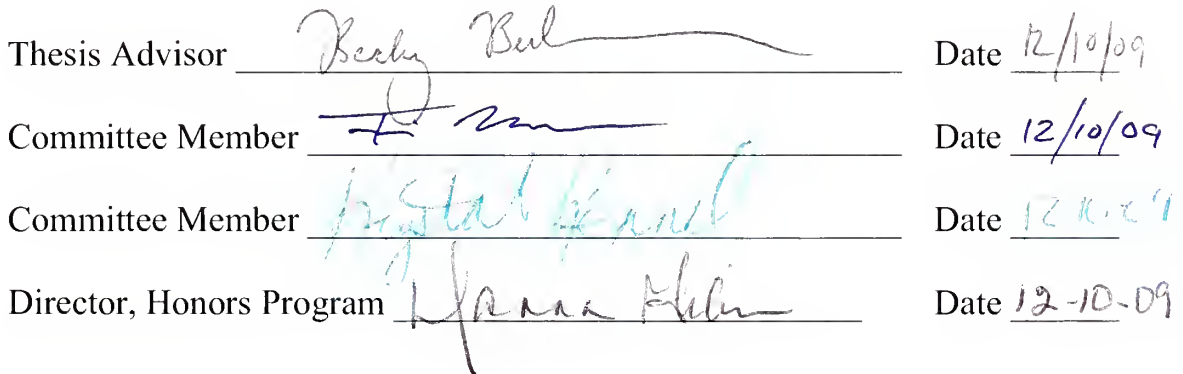 Thesis Advisor Becky Date 12/10/09
Committee Member Date 12/10/09
Committee Member Krystal Date
Director, Honors Program Donna Date 12-10-09